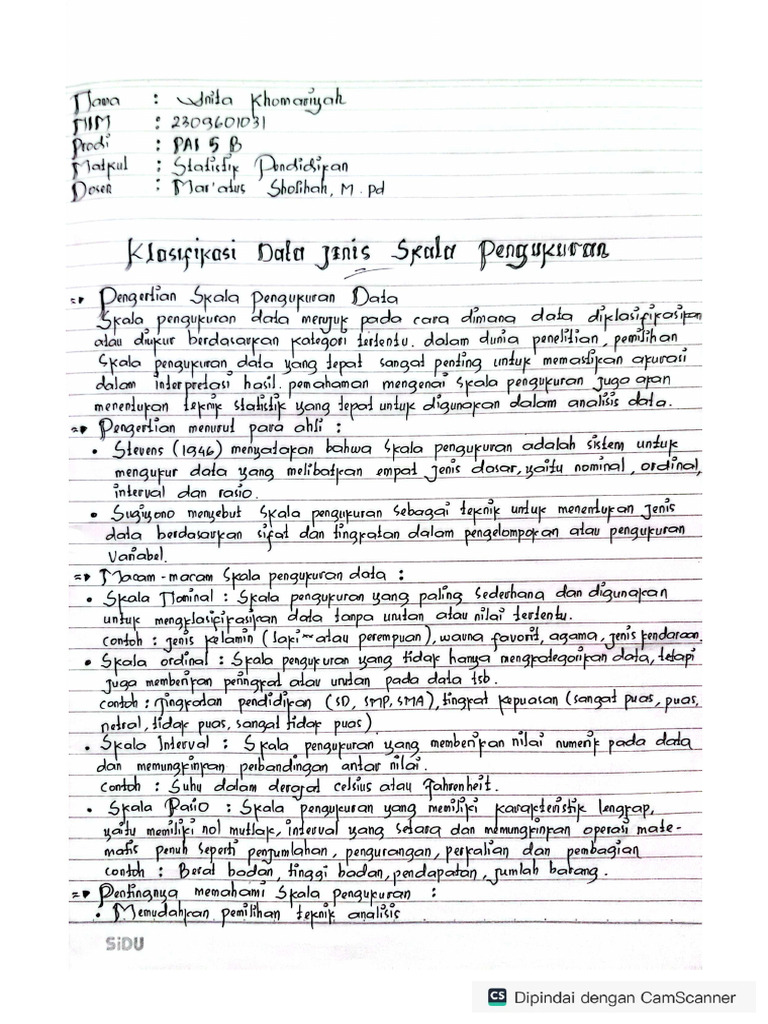 Nama : Unita Khomariyah
NIM : 2309601031
Prodi : PAI 5 B
Matkul : Statistik Pendidikan
Dosen : Mar'atus Sholihah, M.pd
Klasifikasi Data Jenis Skala Pengukuran
=> Pengertian Skala Pengukuran Data
Skala pengukuran data merujuk pada cara dimana data diklasifikasikan
atau diukur berdasarkan kategori tertentu. dalam dunia penelitian, pemilihan
Skala pengukuran data yang tepat sangat penting untuk memastikan akurasi
dalam interpretasi hasil. pemahaman mengenai skala pengukuran juga akan
menentukan teknik statistik yang tepat untuk digunakan dalam analisis data.
=> Pengertian menurut para ahli :
• Stevens (1946) menyatakan bahwa skala pengukuran adalah sistem untuk
mengukur data yang melibatkan empat jenis dasar, yaitu nominal, ordinal,
interval dan rasio.
• Sugiyono menyebut skala pengukuran sebagai teknik untuk menentukan jenis
data berdasarkan sifat dan tingkatan dalam pengelompokan atau pengukuran
Variabel.
=> Macam-macam skala pengukuran data :
• Skala Nominal : Skala pengukuran yang paling sederhana dan digunakan
untuk mengklasifikasikan data tanpa urutan atau nilai tertentu.
contoh : jenis kelamin (laki~atau perempuan), warna favorit, agama, jenis kendaraan.
• Skala ordinal : Skala pengukuran yang tidak hanya mengkategorikan data, tetapi
juga memberikan peringkat atau urutan pada data tsb.
contoh : Tingkatan pendidikan (SD, SMP, SMA), tingkat kepuasan (sangat puas, puas,
netral, tidak puas, sangat tidak puas)
• Skala Interval : Skala pengukuran yang memberikan nilai numerik pada data
dan memungkinkan perbandingan antar nilai.
contoh : Suhu dalam derajat celsius atau Fahrenheit.
• Skala Rasio : Skala pengukuran yang memiliki karakteristik lengkap,
yaitu memiliki nol mutlak, interval yang setara dan memungkinkan operasi mate-
matis penuh seperti penjumlahan, pengurangan, perkalian dan pembagian
contoh : Berat badan, tinggi badan, pendapatan, jumlah barang.
=> Pentingnya memahami Skala pengukuran :
• Memudahkan pemilihan teknik analisis
SiDU
CS Dipindai dengan CamScanner